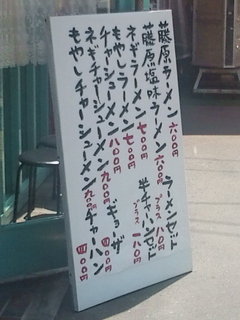 藤原ラーメン 六〇〇円
藤原塩味ラーメン 六〇〇円
ネギラーメン 七〇〇円
もやしラーメン 七〇〇円
チャーシューメン 八〇〇円
ネギチャーシューメン 九〇〇円
もやしチャーシューメン 九〇〇円
ラーメンセット
プラス 一八〇円
半チャーハンセット
プラス 一八〇円
ギョーザ 四〇〇円
チャーハン 四〇〇円